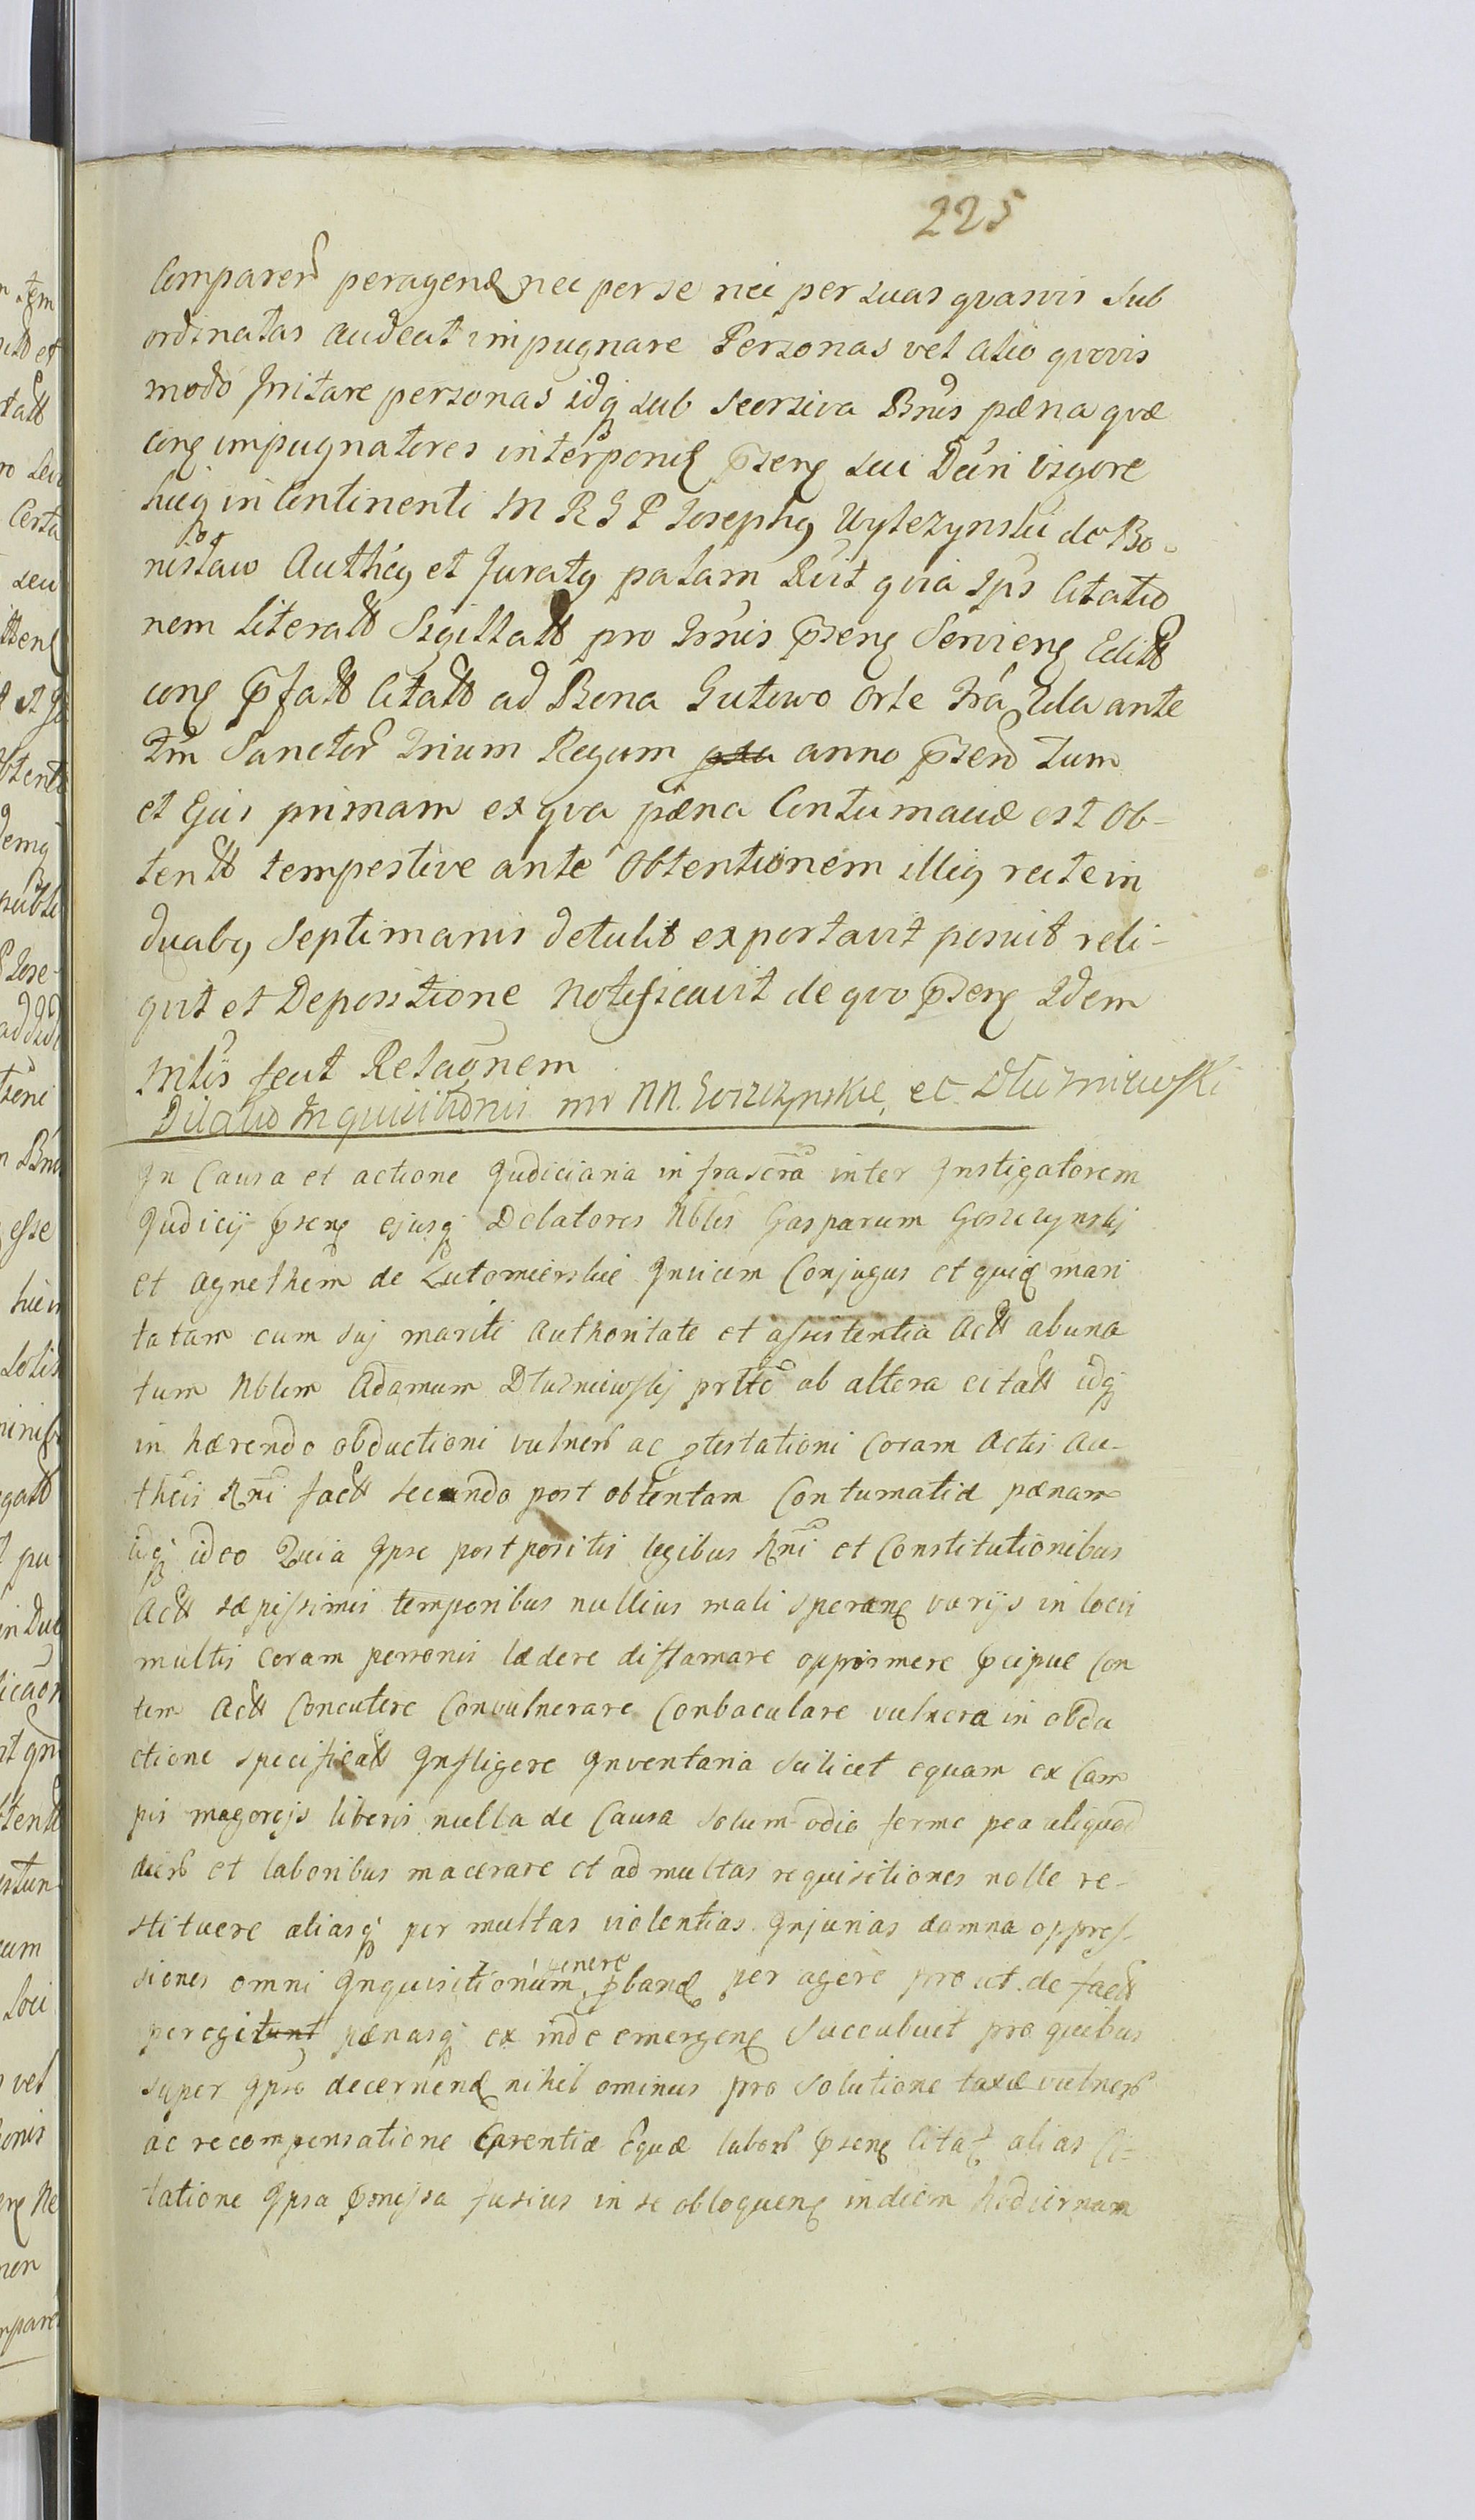 225
Comparen peragend nec per se nec per suas qvasvis Sub
ordinatas audeat impugnare Personas vel alio qvovis
modo Irritare personas idq sub Seorsiva Bnis pæna qvæ
conq impugnatores interponit psenq sui Dciri vigore
huiq in Continenti M R G P Josephq Wyleżynski de Bo-
nisław Authcq et Juratq palam Rvit qvia Ips Citatio
nem Literatt Sigillatt pro Irnis psenq Servienq Editt
conq pfatt Citatt ad Bona Gutowo Orle Fra 2da ante
Fm Sanctor Trium Regum anno psend tum
et Ejus primam ex qva pæna Contumaciæ est Ob-
tentt tempestive ante Obtentionem illiq recte in
duabq Septimanis detulit exportavit posuit reli-
qvit et Depositione Notificavit de qvo psenq Idem
Mlis fecit Relaonem
Dilatio Inquisitionis inr NN. Goszczynskie, et Dłuzniewski
In Causa et actione Judiciaria infrascra inter Instigatorem
Judicij psenq ejusq Delatores Nbles Gasparum Goszczynskj
et Agnethem de Lutomierskie Invicem Conjuges et quid mari
tatam cum suj mariti Authoritate et assistentia Actt ab una
tum Nblem Adamum Dłuzniewskj prltc ab altera citatt idq
in hærendo obductioni vulner ac ptestationi Coram Actis Au-
thcis Rni factt secundo post obtentam Contumatiæ pænam
idq ideo Quia Ipse postpositis legibus Rni et Constitutionibus
Actt sæpissimis temporibus nullius mali speranq varijs in locis
multis coram personis lædere diffamare opprimere pcipue Con
tem Actt Concutere Convulnerare Conbaculare vulnera in obdu
ctione specificatt Infligere Inventaria Scilicet equam ex Cam
pis magorejs liberis nulla de Causa solum odio ferme pea aliquod
dier et laboribus macerare et ad multas requisitiones nolle re-
stituere aliasq per multas violentias Injurias damna oppres-
siones omni Inquisitionum venere pband per agere prout de factt
peregitunt pænasq ex inde emergenq Succubuit pro quibus
super Ipso decernend nihil ominus pro Solutione taxæ vulner
ac recompensatione Carentiæ Equæ labor psenq Citat alias Ci-
tatione Ipsa pmissa fusius in se obloquenq in diem hodiernam